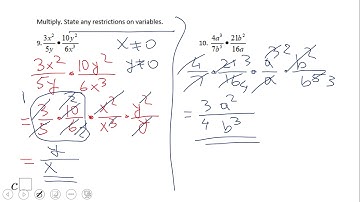 Multiply. State any restrictions on variables.
9. 3x²/5y • 10y²/6x³
x≠0
y≠0
3x²/5y • 10y²/6x³
= 3/5 • 10/6 • x²/x³ • y²/y
= y/x
10. 4a³/7b⁵ • 21b²/16a
4/7 • 21/16 • a³/a • b²/b⁵
= 3a²/4b³